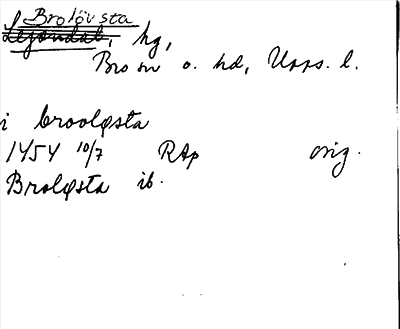 Brolövsta
Lejondal, hg,
Bro sn o. hd, Upps. l.
i brooløsta
1454 10/7 RAp orig.
Broløsta ib.